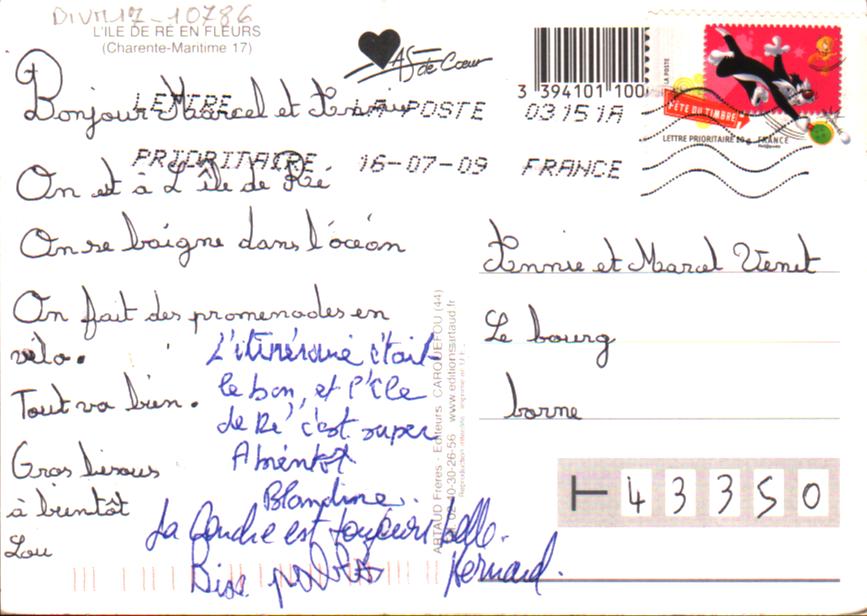 DIVR17-10786
L'ILE DE RÉ EN FLEURS
(Charente-Maritime 17)
AS de Cœur
3 394101 100
LA POSTE
FÊTE DU TIMBRE
LETTRE PRIORITAIRE 20g FRANCE
LETTRE LA POSTE 03151A
PRIORITAIRE 16-07-09 FRANCE
Bonjour Marcel et Annie
On est à L'île de Ré
On se baigne dans l'océan
On fait des promenades en
vélo.
Tout va bien.
Gros bisous
à bientôt
Lou
L'itinéraire était
le bon, et l'île
de Ré c'est super
A bientôt
Blandine.
La Coudre est toujours belle.
Bise
Bernard.
ARTAUD Frères - Editeurs CARQUEFOU (44)
02-40-30-26-56 www.editionsartaud.fr
Annie et Marcel Venet
Le bourg
borne
43350